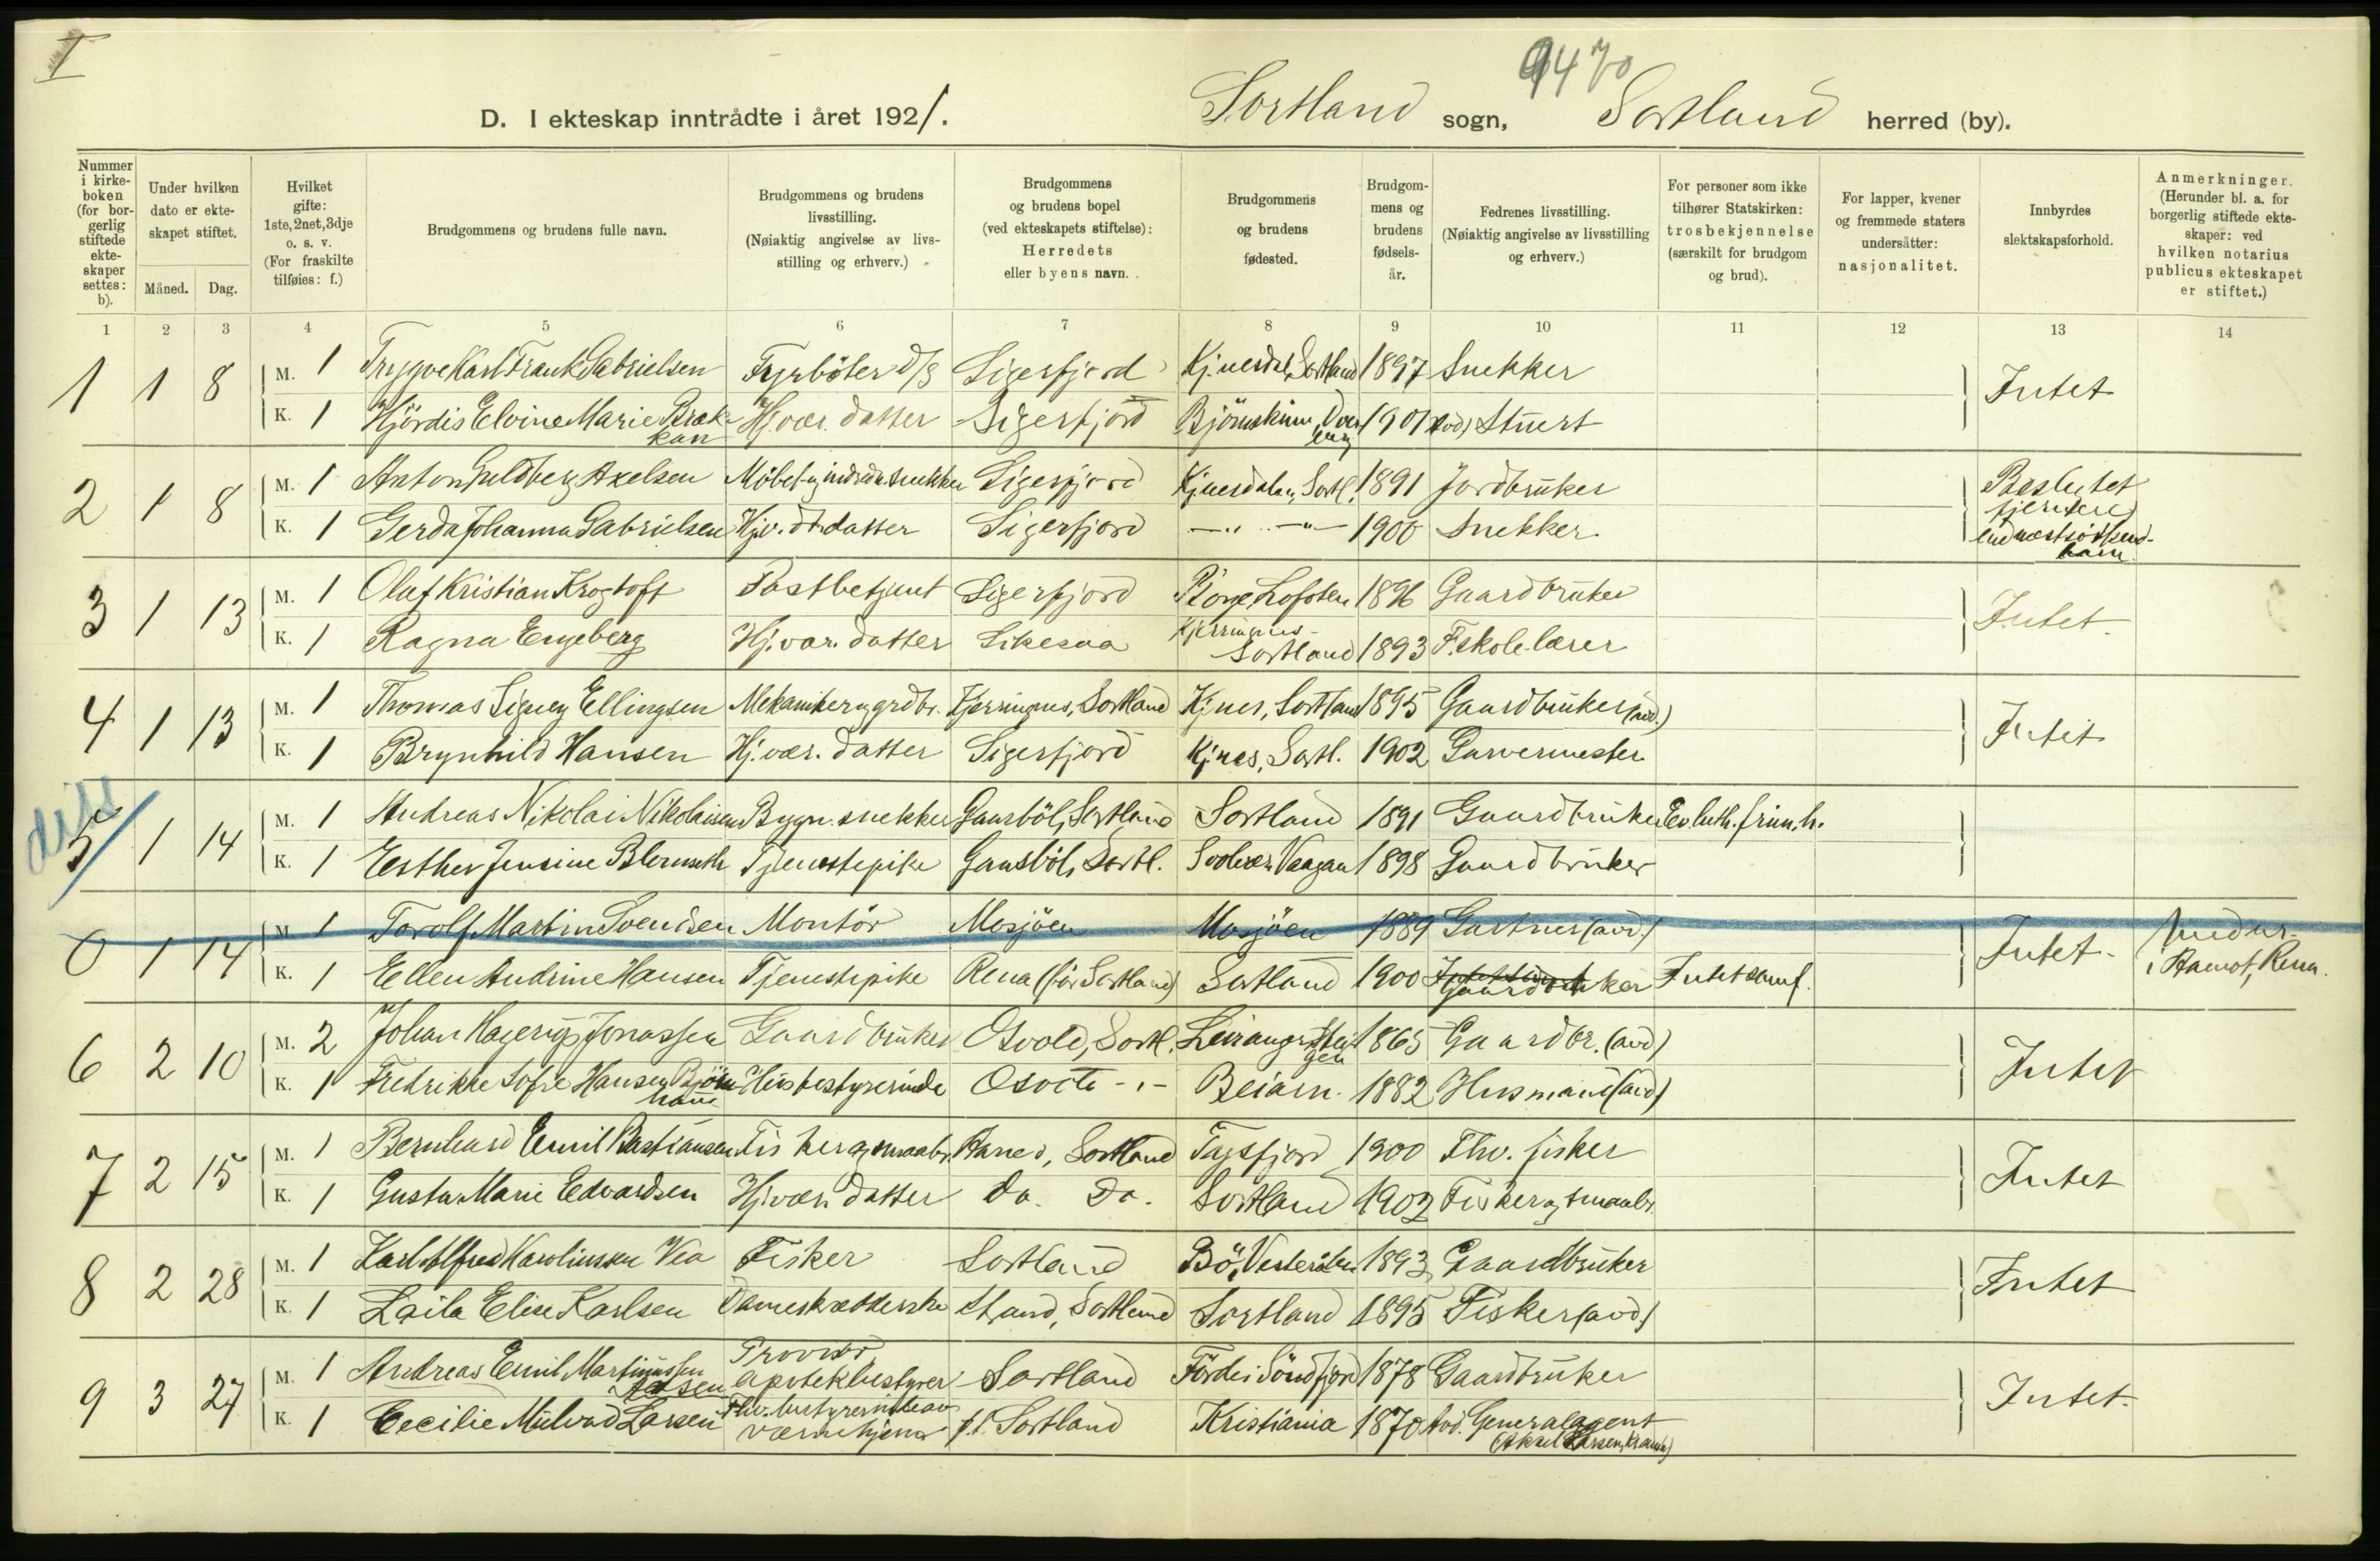 I
9470
D. I ekteskap inntrådte i året 1921. Sortland sogn, Sortland herred (by).
Nummer i kirkeboken (for borgerlig stiftede ekteskaper settes: b).
Under hvilken dato er ekteskapet stiftet.
Måned. Dag.
Hvilket gifte: 1ste, 2net, 3dje o. s. v. (For fraskilte tilføies: f.)
Brudgommens og brudens fulle navn.
Brudgommens og brudens livsstilling. (Nøiaktig angivelse av livsstilling og erhverv.)
Brudgommens og brudens bopel (ved ekteskapets stiftelse): Herredets eller byens navn.
Brudgommens og brudens fødested.
Brudgommens og brudens fødselsår.
Fedrenes livsstilling. (Nøiaktig angivelse av livsstilling og erhverv.)
For personer som ikke tilhører Statskirken: trosbekjennelse (særskilt for brudgom og brud).
For lapper, kvener og fremmede staters undersåtter: nasjonalitet.
Innbyrdes slektskapsforhold.
Anmerkninger. (Herunder bl. a. for borgerlig stiftede ekteskaper: ved hvilken notarius publicus ekteskapet er stiftet.)
1 2 3 4 5 6 7 8 9 10 11 12 13 14
1 1 8 M. 1 Trygve Karl Frank Gabrielsen Fyrböter d/s Sigerfjord Kjnesdal, Sortland 1897 Snekker Intet
K. 1 Hjördis Elvine Marie Brækkan Hj.vær. datter Sigerfjord Björnskinn, Dverberg 1901 Stuert
2 1 8 M. 1 Anton Guldberg Axelsen Møbel og indredn.snekker Sigerfjord Kjnesdalen, Sortl. 1891 Jordbruker Beslegtet fjernere end næstsödskendbarn
K. 1 Gerda Johanna Gabrielsen Hj.v. datter Sigerfjord —„— —„— 1900 Snekker
3 1 13 M. 1 Olaf Kristian Krogtoft Postbetjent Sigerfjord Lofoten 1896 Gaardbruker Intet.
K. 1 Ragna Engeberg Hj.vær. datter Sortland 1893 F.skolelærer
4 1 13 M. 1 Thomas Signey Ellingsen Mekaniker og grdbr. Kjerringnes, Sortland Kjnes, Sortland 1895 Gaardbruker (avd.) Intet
K. 1 Brynhild Hansen Hj.vær. datter Sigerfjord Kjnes, Sortl. 1902 Garvermester
diss
5 1 14 M. 1 Andreas Nikolai Nikolaisen Bygn.snekker Gaasböl, Sortland Sortland 1891 Gaardbruker Ev. luth. frim.h.
K. 1 Esther Jensine Gaasböl, Sortl. Svolvær, Vaagan 1898 Gaardbruker
Tjenestepike
0 1 14 M. 1 Torolf Martin Svendsen Montör Mosjöen Mosjöen 1889 Gartner (avd.) Intet
K. 1 Ellen Andrine Hansen Tjenestepike Rena (för Sortland) Sortland 1900 Gaardbruker i Aamot, Rena.
6 2 10 M. 2 Johan Hagerup Jonassen Gaardbruker Osvold, Sortl. Leiranger, Steigen 1865 Gaardbr. (avd) Intet
K. 1 Fredrikke Sofie Hansen Husbestyrerinde —„— Beiarn. 1882 Husmand (avd)
7 2 15 M. 1 Bernhard Emil Bastiansen Fisker og smaabr. Sortland 1900 Fhv. fisker Intet
K. 1 Gusta Marie Edvardsen Hj.vær. datter Do. Do. Sortland 1902 Fisker og smaabr.
8 2 28 M. 1 Karl Alfred Karolinsen Vea Fisker Sortland Bö i Vesteraalen 1893 Gaardbruker Intet
K. 1 Laila Elise Karlsen Dameskrædderske Strand, Sortland Sortland 1895 Fisker (avd)
9 3 27 M. 1 Andreas Emil Martinussen Provisor, apotekbestyrer Sortland Förde i Söndfjord 1878 Gaardbruker Intet.
K. 1 Cecilie Mulvad Larsen Fhv. bestyrerinde av p.t. Sortland Kristiania 1870 Avd. Generalagent